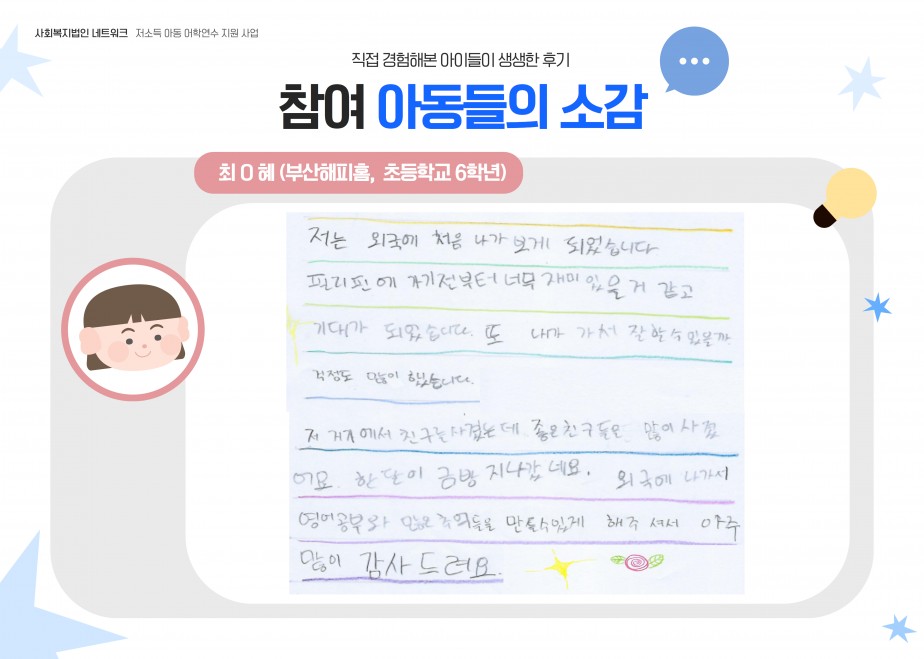 사회복지법인 네트워크 저소득 아동 어학연수 지원 사업
직접 경험해본 아이들이 생생한 후기
참여 아동들의 소감
최 O 혜 (부산해피홈, 초등학교 6학년)
저는 외국에 처음 나가 보게 되었습니다
필리핀에 가기전부터 너무 재미있을 거 같고
기대가 되었습니다. 또 내가 가서 잘 할 수 있을까
걱정도 많이 했습니다.
저 거기에서 친구를 사겼는데 좋은 친구들은 많이 사겼
어요. 한 달이 금방 지나갔네요. 외국에 나가서
영어공부와 많은 추억들을 만들수있게 해주셔서 아주
많이 감사드려요.